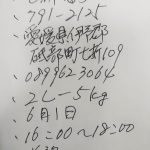 791-2125
愛媛県伊予郡
砥部町七折109
0899623064
2L-5kg
6月1日
16:00~18:00